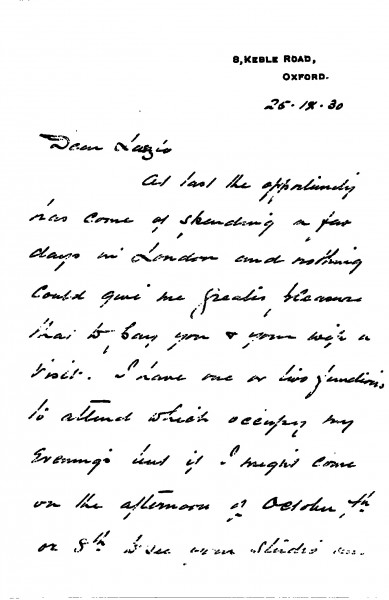 8, KEBLE ROAD,
OXFORD.
25·IX·30
Dear Laszlo
At last the opportunity
has come of spending a few
days in London and nothing
could give me greater pleasure
than to pay you & your wife a
visit. I have one or two functions
to attend which occupy my
Evenings but if I might come
on the afternoon of October 7th
or 8th to see your studio